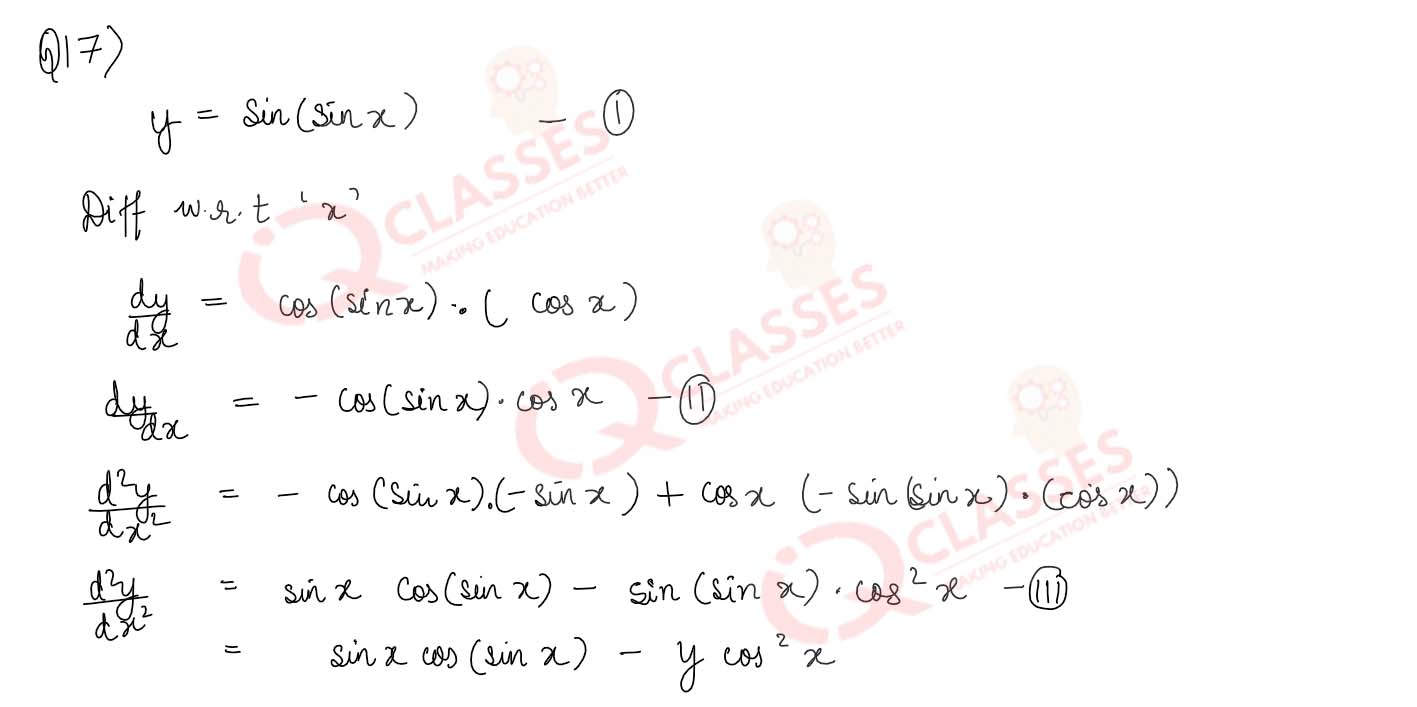 Q17)
y = Sin(sin x) - ①
Diff w.r.t 'x'
dy/dx = cos(sin x) . ( cos x)
dy/dx = - cos(sin x) . cos x - ⑪
d²y/dx² = - cos(sin x).(-sin x) + cos x (-sin(sin x) . (cos x))
d²y/dx² = sin x cos(sin x) - sin(sin x) . cos² x - (III)
= sin x cos(sin x) - y cos² x
iQ CLASSES
MAKING EDUCATION BETTER
iQ CLASSES
MAKING EDUCATION BETTER
iQ CLASSES
MAKING EDUCATION BETTER